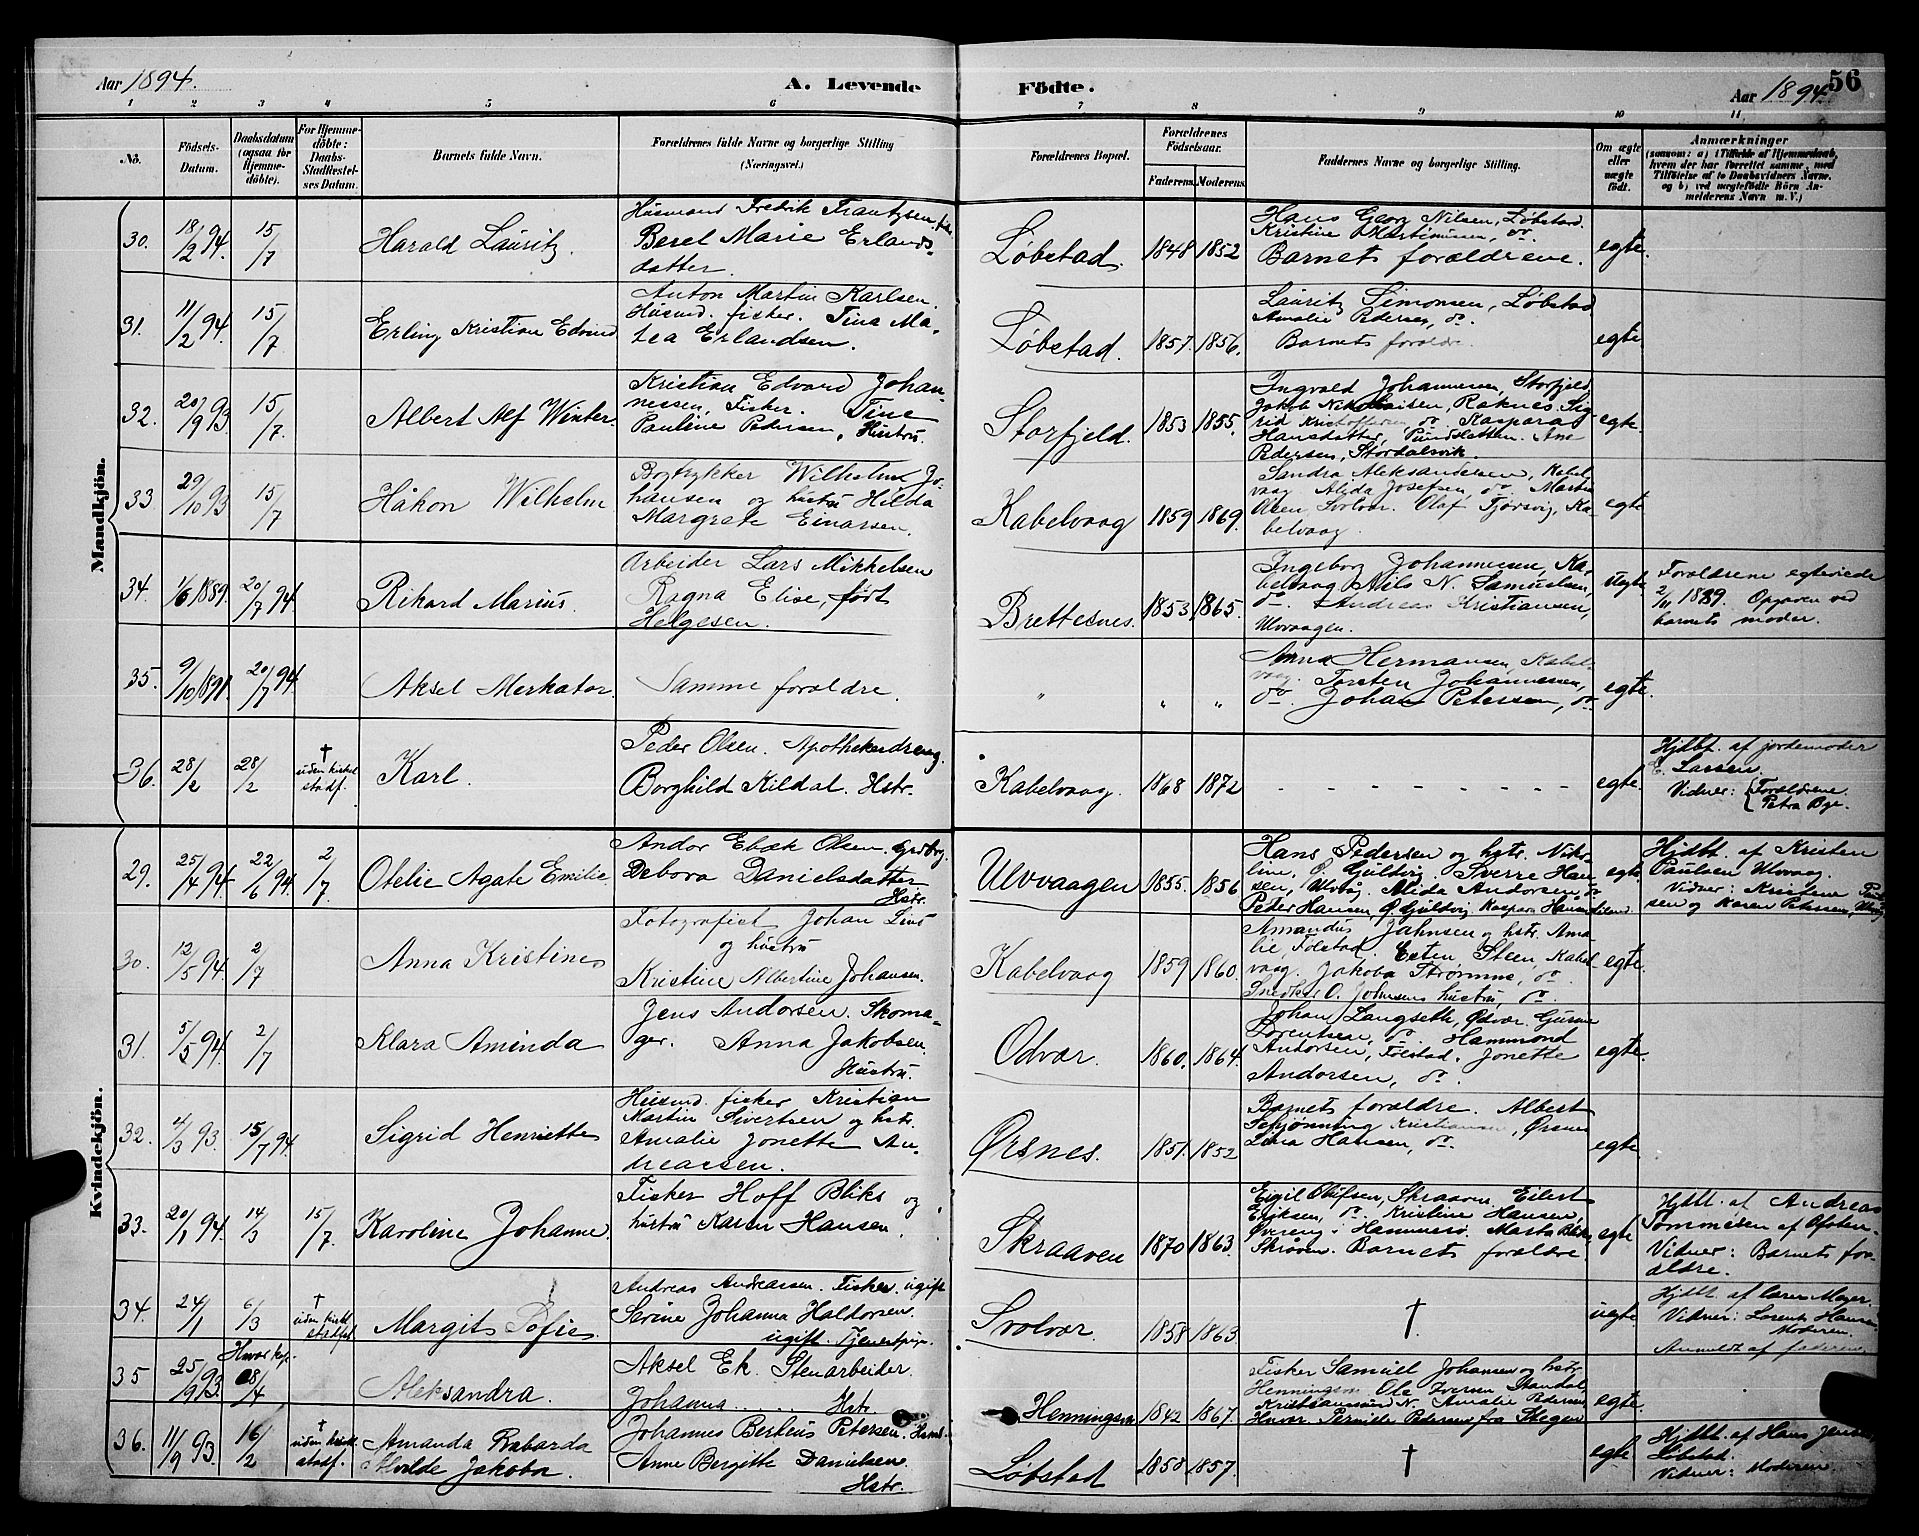 Aar 1894. A. Levende Födte. Aar 1894. 56
1 2 3 4 5 6 7 8 9 10 11
No. Födsels-Datum. Daabsdatum (ogsaa for Hjemme-döbte). For Hjemme-döbte: Daabs-Stadfæstel-ses Datum. Barnets fulde Navn. Forældrenes fulde Navne og borgerlige Stilling (Næringsvei.) Forældrenes Bopæl. Forældrenes Födselsaar. Faderens. Moderens. Faddernes Navne og borgerlig Stilling. Om ægte eller uægte födt. Anmærkninger (saasom: a) i Tilfælde af Hjemmedaab, hvem der har forrettet samme, med Tilföielse af to Daabsvidners Navne. og b) ved uægtefödte Börn An-melderens Navn m. V.)
Mandkjön.
30. 18/2 94. 15/7 Harald Lauritz Husmand Fredrik Frantzsen, fisk.
Berel Marie Erlands-
datter. Løbstad. 1848 1852 Hans Georg Nilsen, Løbstad.
Kristine Martinussen, do.
Barnets forældrene. egte.
31. 11/2 94. 15/7 Erling Kristian Edvind Anton Martin Karlsen.
Husmd. fisker. Tina Ma-
tea Erlandsen. Løbstad. 1857. 1856. Lauritz Simonsen, Løbstad
Amalie Pedersen, do.
Barnets forældre. egte
32. 20/9 93. 15/7. Albert Alf Winter. Kristian Edvard Johan-
nessen, Fisker. Tine
Pauline Pedersen, Hustru. Storfjeld. 1853 1855. Ingvald Johannesen, Storfjeld
Jakob Nikolaisen, Raknes. Sig-
rid Kristoffersen do Kaspara
Hansdatter, Pundsletten. Ane
Pedersen, Stordalsvik. egte.
33 29/10 93 15/7 Håkon Wilhelm Bogtrykker Wilhelm Jo-
hansen og hustru Hilda
Margrete Einarsen. Kabelvaag 1859 1869. Sandra Aleksandersen, Kabel-
vaag Alida Josefsen, do Martin
Olsen, Svolvær. Olaf Tjørsvig, Ka-
belvaag. egte
34. 1/6 1889. 20/7 94 Rikard Marius. Arbeider Lars Mikkelsen
Ragna Elise, født
Helgesen. Brettesnes. 1853 1865. Ingeborg Johannesen, Ka-
belvaag Nils N. Samuelsen,
do. Andreas Kristiansen,
Ulvvaagen. uegte Forældrene egteviede
2/11 1889. Opgaven ved
barnets moder.
35. 9/10 1891. 20/7 94. Aksel Merkator. Samme forældre. „ „ „ Anna Hermansen, Kabel-
vaag. Torsten Johannessen,
do. Johan Petersen, do. egte.
36. 28/2 28/2 † uden kirkel stadf. Karl. Peder Olsen. Apothekerdreng.
Borghild Kildal. Hstr. Kabelvaag. 1868 1872 - - - - - - - - egte. Hjdbt. af jordemoder
E. Larsen.
Vidner: Forældrene.
Petra Bye.
Kvindekjön.
29. 25/4 94 22/6 94. 2/7 Otelie Agate Emilie Andor Ebæk Olsen. grdbrg.
Debora Danielsdatter
Hstr. Ulvvaagen 1855. 1856 Hans Pedersen og hstr. Niko-
line, Ø. Guldvig. Sverre Han-
sen, Ulvvåg. Alida Andorsen do
Peder Hansen, Ø. Guldvig. Kaspara Hansen egte Hjdbt. af Kristen
Paulsen Ulvvaag.
Vidner: Kristine Paul-
sen og Karen Petersen, Ulvvåg
30. 12/5 94. 2/7 Anna Kristine Fotografist Johan Lind
og hustru
Kristine Albertine Johansen. Kabelvaag 1859 1860. Amandus Jahnsen og hstr. Ama-
lie, Følstad. Esten Steen, Kabel-
vaag. Jakoba Strømme, do.
Snedker O. Johnsens hustru, do. egte.
31. 5/5 94. 2/7 Klara Aminda Jens Andorsen. Skoma-
ger. Anna Jakobsen.
Hustru. Odvær. 1860. 1864. Johan Langseth, Odvær.
Lorentsen, do. Hammond
Andorsen, Følstad. Jonette
Andorsen, do. egte.
32. 4/3 93. 15/7 94. Sigrid Henriette Husmd. fisker Kristian
Martin Sivertsen og hstr.
Amalie Jonette An-
dreassen. Ørsnes. 1851. 1852 Barnets forældre. Albert
Schjønning Kristiansen, Ørsnes
Lina Hansen, do. egte.
33. 20/1 94. 14/3 15/7. Karoline Johanne Fisker Hoff Bliks og
hustru Karen Hansen. Skraaven 1870 1863. Eigil Olufsen, Skraaven, Eilert
Eriksen, do. Kristine Hansen,
i Hammerø. Marta
Skroven. Barnets forældre egte Hjdbt. af Andreas
Tommesen af Ofoten.
Vidner: Barnets for-
ældre.
34. 24/1 6/3 † uden kirkl stadfst Margit Sofie. Andreas Andreassen. Fisker ugift
Serine Johanna Haldorsen.
ugift. Tjenestpige. Svolvær. 1858 1863 † uegte Hjdbt. af Caren Meyer.
Vidner: Lorents Hansen
Moderen.
Anmeldt af faderen
35 25/9 93 18/4 Aleksandra. Aksel Ek. Stenarbeider.
Johanna ..... Hstr Henningsvær 1842 1867. Fisker Samuel Johansen og hstr
Henningsvær Ole Iversen
Kristiansund N. Amalie Pedersen
Pedersen fra Stegen egte.
36. 11/9 93. 16/2 † uden kirkl stadf. Amanda Rabarda
Alvilde Jakoba. Johannes Berteus Petersen. Husmd.
Anne Bergitte Danielsen.
Hstr. Løbstad 1858 1857. † egte Hjdbt. af Hans Jensen
Løbstad.
Vidner: Moderen.